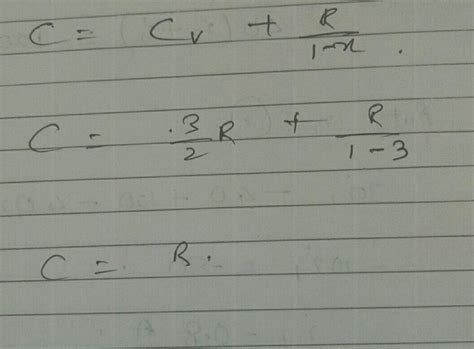 C = Cv + R/1-x .
C = 3/2 R + R/1-3
C = R.